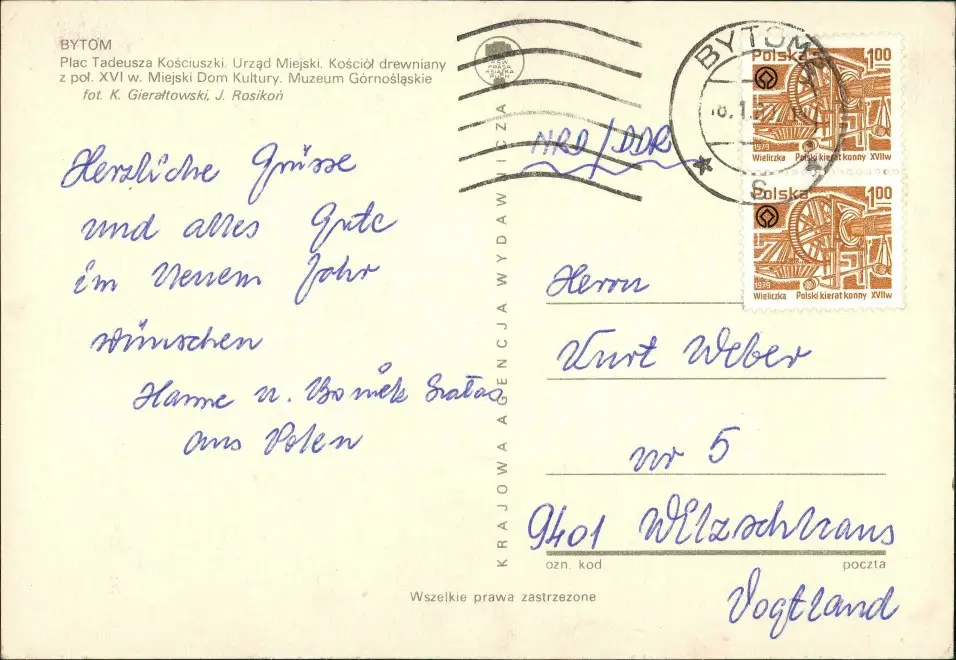 BYTOM
Plac Tadeusza Kościuszki. Urząd Miejski. Kościół drewniany
z poł. XVI w. Miejski Dom Kultury. Muzeum Górnośląskie
fot. K. Gierałtowski, J. Rosikoń
Herzliche Grüsse
und alles Gute
im Neuem Jahr
wünschen
Hanne u.
aus Polen
KRAJOWA AGENCJA WYDAWNICZA
RSW
PRASA
KSIĄŻKA
RUCH
NRD/DDR
BYTOM
Polska 1,00
1979
Wieliczka Polski kierat konny XVIIw
Polska 1,00
1979
Wieliczka Polski kierat konny XVIIw
Herrn
Kurt Weber
nr 5
9401
ozn. kod poczta
Vogtland
Wszelkie prawa zastrzeżone